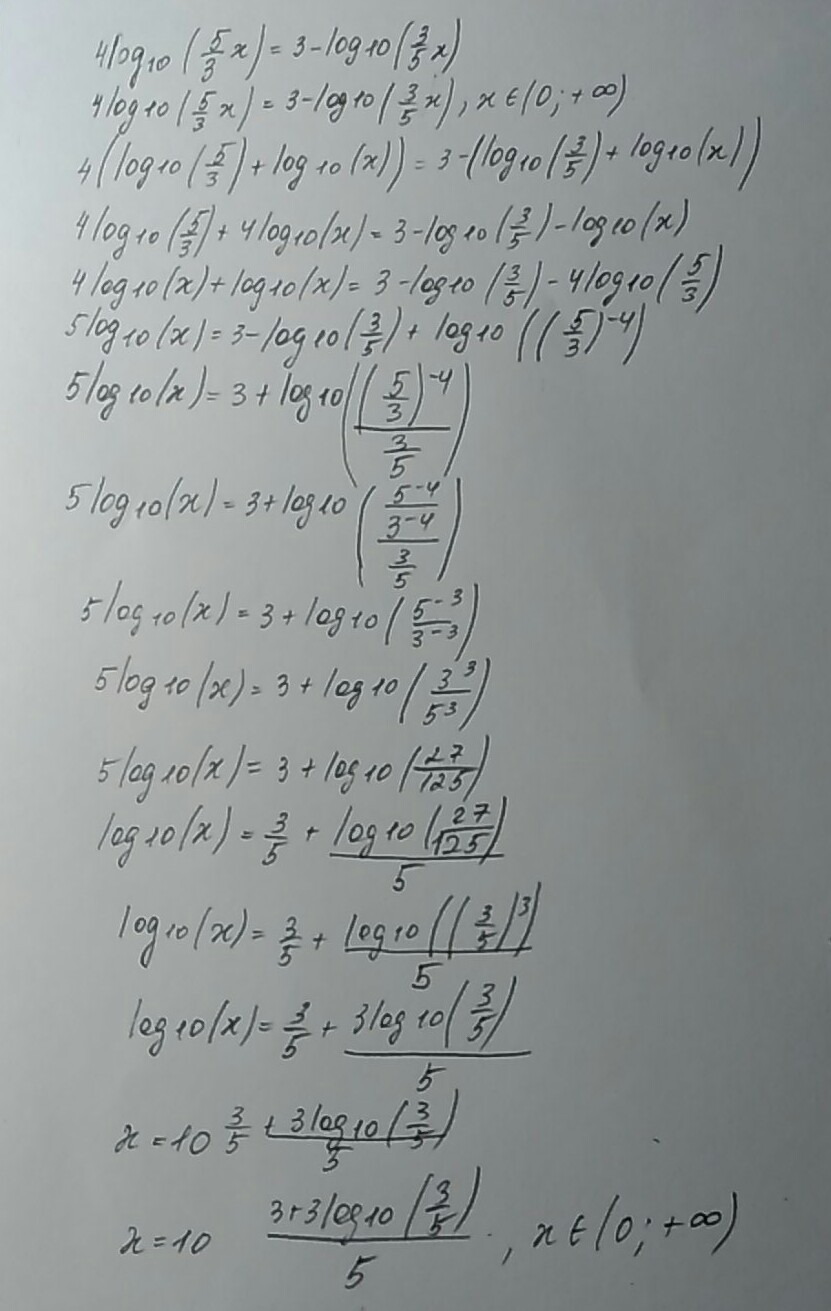 4log₁₀(5/3 x) = 3 - log10(3/5 x)
4log10(5/3 x) = 3 - log10(3/5 x), x∈(0; +∞)
4(log10(5/3) + log10(x)) = 3 - (log10(3/5) + log10(x))
4log10(5/3) + 4log10(x) = 3 - log10(3/5) - log10(x)
4log10(x) + log10(x) = 3 - log10(3/5) - 4log10(5/3)
5log10(x) = 3 - log10(3/5) + log10((5/3)⁻⁴)
5log10(x) = 3 + log10((5/3)⁻⁴/(3/5))
5log10(x) = 3 + log10((5⁻⁴/3⁻⁴)/(3/5))
5log10(x) = 3 + log10(5⁻³/3⁻³)
5log10(x) = 3 + log10(3³/5³)
5log10(x) = 3 + log10(27/125)
log10(x) = 3/5 + log10(27/125)/5
log10(x) = 3/5 + log10((3/5)³)/5
log10(x) = 3/5 + 3log10(3/5)/5
x = 10 3/5 + 3log10(3/5)/5
x = 10 (3+3log10(3/5))/5, x∈(0; +∞)